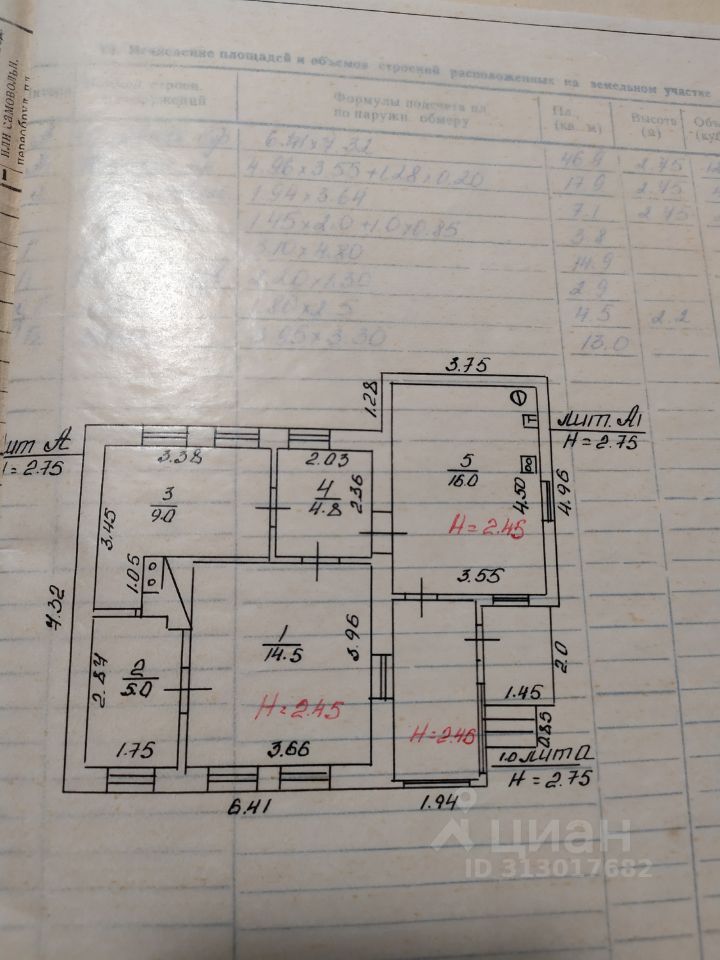 или самовольн.
переоборуд. пл.
Исчисление площадей и объемов строений расположенных на земельном участке
Формулы подсчета пл.
по наружн. обмеру
Пл.
(кв. м)
Высота
(м)
6.41 x 7.32
46.9
2.75
4.96 x 3.55 + 1.28 x 0.20
17.9
2.75
1.94 x 3.64
7.1
2.45
1.45 x 2.0 + 1.0 x 0.85
3.8
3.10 x 4.80
14.9
2.20 x 1.30
2.9
1.80 x 2.5
4.5
2.2
3.95 x 3.30
13.0
3.75
1.28
лит А
H = 2.75
лит. А1
H = 2.75
3.38
2.03
5
16.0
3
9.0
4
4.8
2.36
4.50
4.96
3.45
H = 2.45
1.05
3.55
7.32
1
14.5
3.96
2.0
2.84
2
5.0
H = 2.45
H = 2.45
1.45
0.85
1.75
3.66
1.0
лит а
H = 2.75
6.41
1.94
циан
ID 313017682